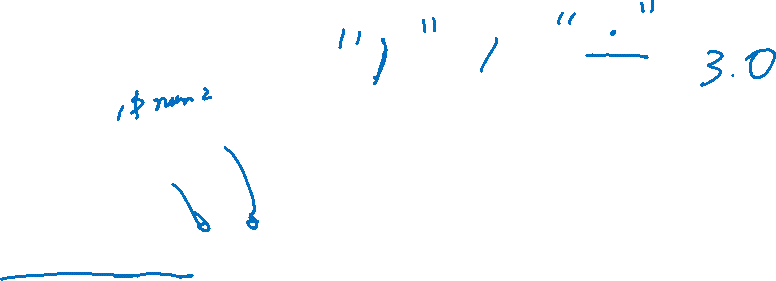 "," , "." 3.0
,$ num2